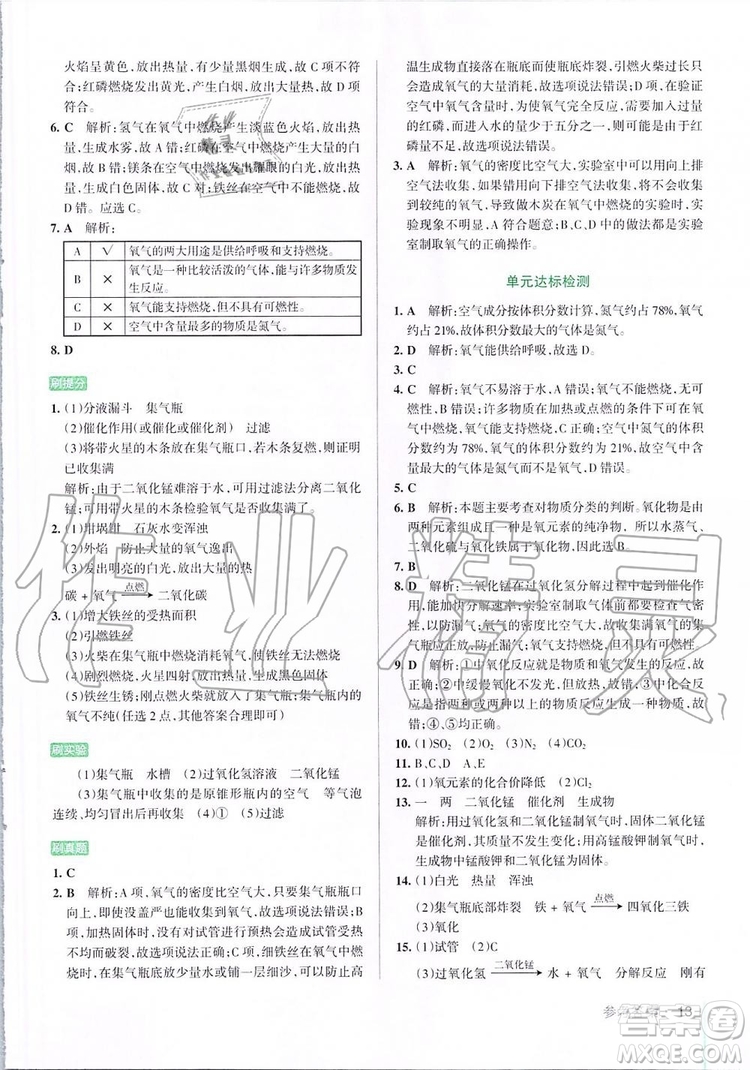 火焰呈黄色，放出热量，有少量黑烟生成，故C项不
符合；红磷燃烧发出黄光，产生白烟，放出大量热量，
故D项符合。
6. C　解析：氢气在氧气中燃烧产生淡蓝色火焰，放出热
量，生成水雾，故A错；红磷在空气中燃烧产生大量的白
烟，故B错；镁条在空气中燃烧发出耀眼的白光，放出热
量，生成白色固体，故C对；铁丝在空气中不能燃烧，故
D错。应选C。
7. A　解析：
A　√　氧气的两大用途是供给呼吸和支持燃烧。
B　×　氧气是一种比较活泼的气体，能与许多物质发生
化学反应。
C　×　氧气能支持燃烧，但不具有可燃性。
D　×　空气中含量最多的物质是氮气。
8. D
刷提分
1. (1)分液漏斗　集气瓶
(2)催化作用(或催化或催化剂)　过滤
(3)将带火星的木条放在集气瓶口，若木条复燃，则证明
已收集满
解析：由于二氧化锰难溶于水，可用过滤法分离二氧化
锰；可用带火星的木条检验氧气是否收集满了。
2. (1)坩埚钳　石灰水变浑浊
(2)外焰　防止大量的氧气逸出
(3)发出明亮的白光，放出大量的热
碳 + 氧气 点燃→ 二氧化碳
3. (1)增大铁丝的受热面积
(2)引燃铁丝
(3)火柴在集气瓶中燃烧消耗氧气，使铁丝无法燃烧
(4)剧烈燃烧，火星四射，放出大量的热，生成黑色固体
(5)铁丝生锈；刚点燃火柴就放入了集气瓶；集气瓶内的
氧气不纯(任选2点，其他答案合理即可)
刷实验
(1)集气瓶　水槽　(2)过氧化氢溶液　二氧化锰
(3)集气瓶中收集的是原锥形瓶内的空气　等气泡
连续、均匀冒出后再收集　(4)①　(5)过滤
刷真题
1. C
2. B　解析：A项，氧气的密度比空气大，只要集气瓶瓶口
朝上，即使没盖严也可以收集到氧气，故选项说法错
误；B项，加热固体时，没有预热会造成试管受热
不均而破裂，故选项说法正确；C项，细铁丝在氧气中燃
烧时，在集气瓶底部放少量水或铺一层细沙，可以防止高
温生成物直接落在瓶底而使瓶底炸裂，引燃火柴过长只
会造成氧气的大量消耗，故选项说法错误；D项，在验证
空气中氧气含量时，为使氧气完全反应，应使用足量
的红磷，若红磷量不足，不能将氧气完全反应，会造成
进入水的量少于五分之一，故选项说法错误。
3. A　解析：氧气的密度比空气大，实验室可以用向上排
空气法收集，若错用向下排空气法收集，则不能收集
到较纯的氧气，导致做木炭在氧气中燃烧的实验时，实
验现象不明显，A符合题意；B、C、D中的做法都符合实
验室制取氧气的正确操作。
单元达标检测
1. A　解析：空气成分按体积分数计算，氮气约占78%，氧气
约占21%，故体积分数最大的气体是氮气。
2. D　解析：氧气能供给呼吸，故选D。
3. C
4. C　解析：氧气不易溶于水，A错误；氧气不能燃烧，B错
误；许多物质在加热或点燃的条件下，能与氧气剧烈反
应，但常温下不剧烈，C正确；空气中含量最大的气体体积
分数约为78%，氧气的体积分数约为21%，故空气中体积
分数最大的气体是氮气，D错误。
5. C
6. B　解析：本题主要考查对物质分类的判断。氧化物是由
两种元素组成且一种是氧元素的纯净物，所以水蒸气、
二氧化硫与氧化铁属于氧化物，因此选B。
7. B
8. D　解析：二氧化锰在过氧化氢分解过程中起到催化作
用，反应前后质量不变；实验室制取气体前都要先检查装
置的气密性，防止漏气；氧气的密度大于空气，收集满氧气的集气
瓶应正放，防止漏气；氧气支持燃烧，但不能作燃料。
9. D　解析：①中氧化反应就是物质与氧气发生的反应，故
正确；②中缓慢氧化不发光，但放热，故错；③中化合反
应是指两种或两种以上的物质反应生成一种物质，故
错；④、⑤均正确。
10. (1)SO₂　(2)SO₂　(3)SO₃
11. C　12. B、D、A、E
12. (1)氧元素的化合价降低　(2)Cl₂
13. 一　两　二氧化锰　催化剂　生成物
解析：用过氧化氢和二氧化锰制取氧气时，固体二氧化锰
是催化剂，而用高锰酸钾制取氧气时，
生成物中锰酸钾和二氧化锰为固体。
14. (1)白光　热量　浑浊
(2)集气瓶底部炸裂　铁 + 氧气 点燃→ 四氧化三铁
(3)氧化
15. (1)试管　(2)C
(3)过氧化氢 二氧化锰→ 水 + 氧气　分解反应　刚有
参考答案　13